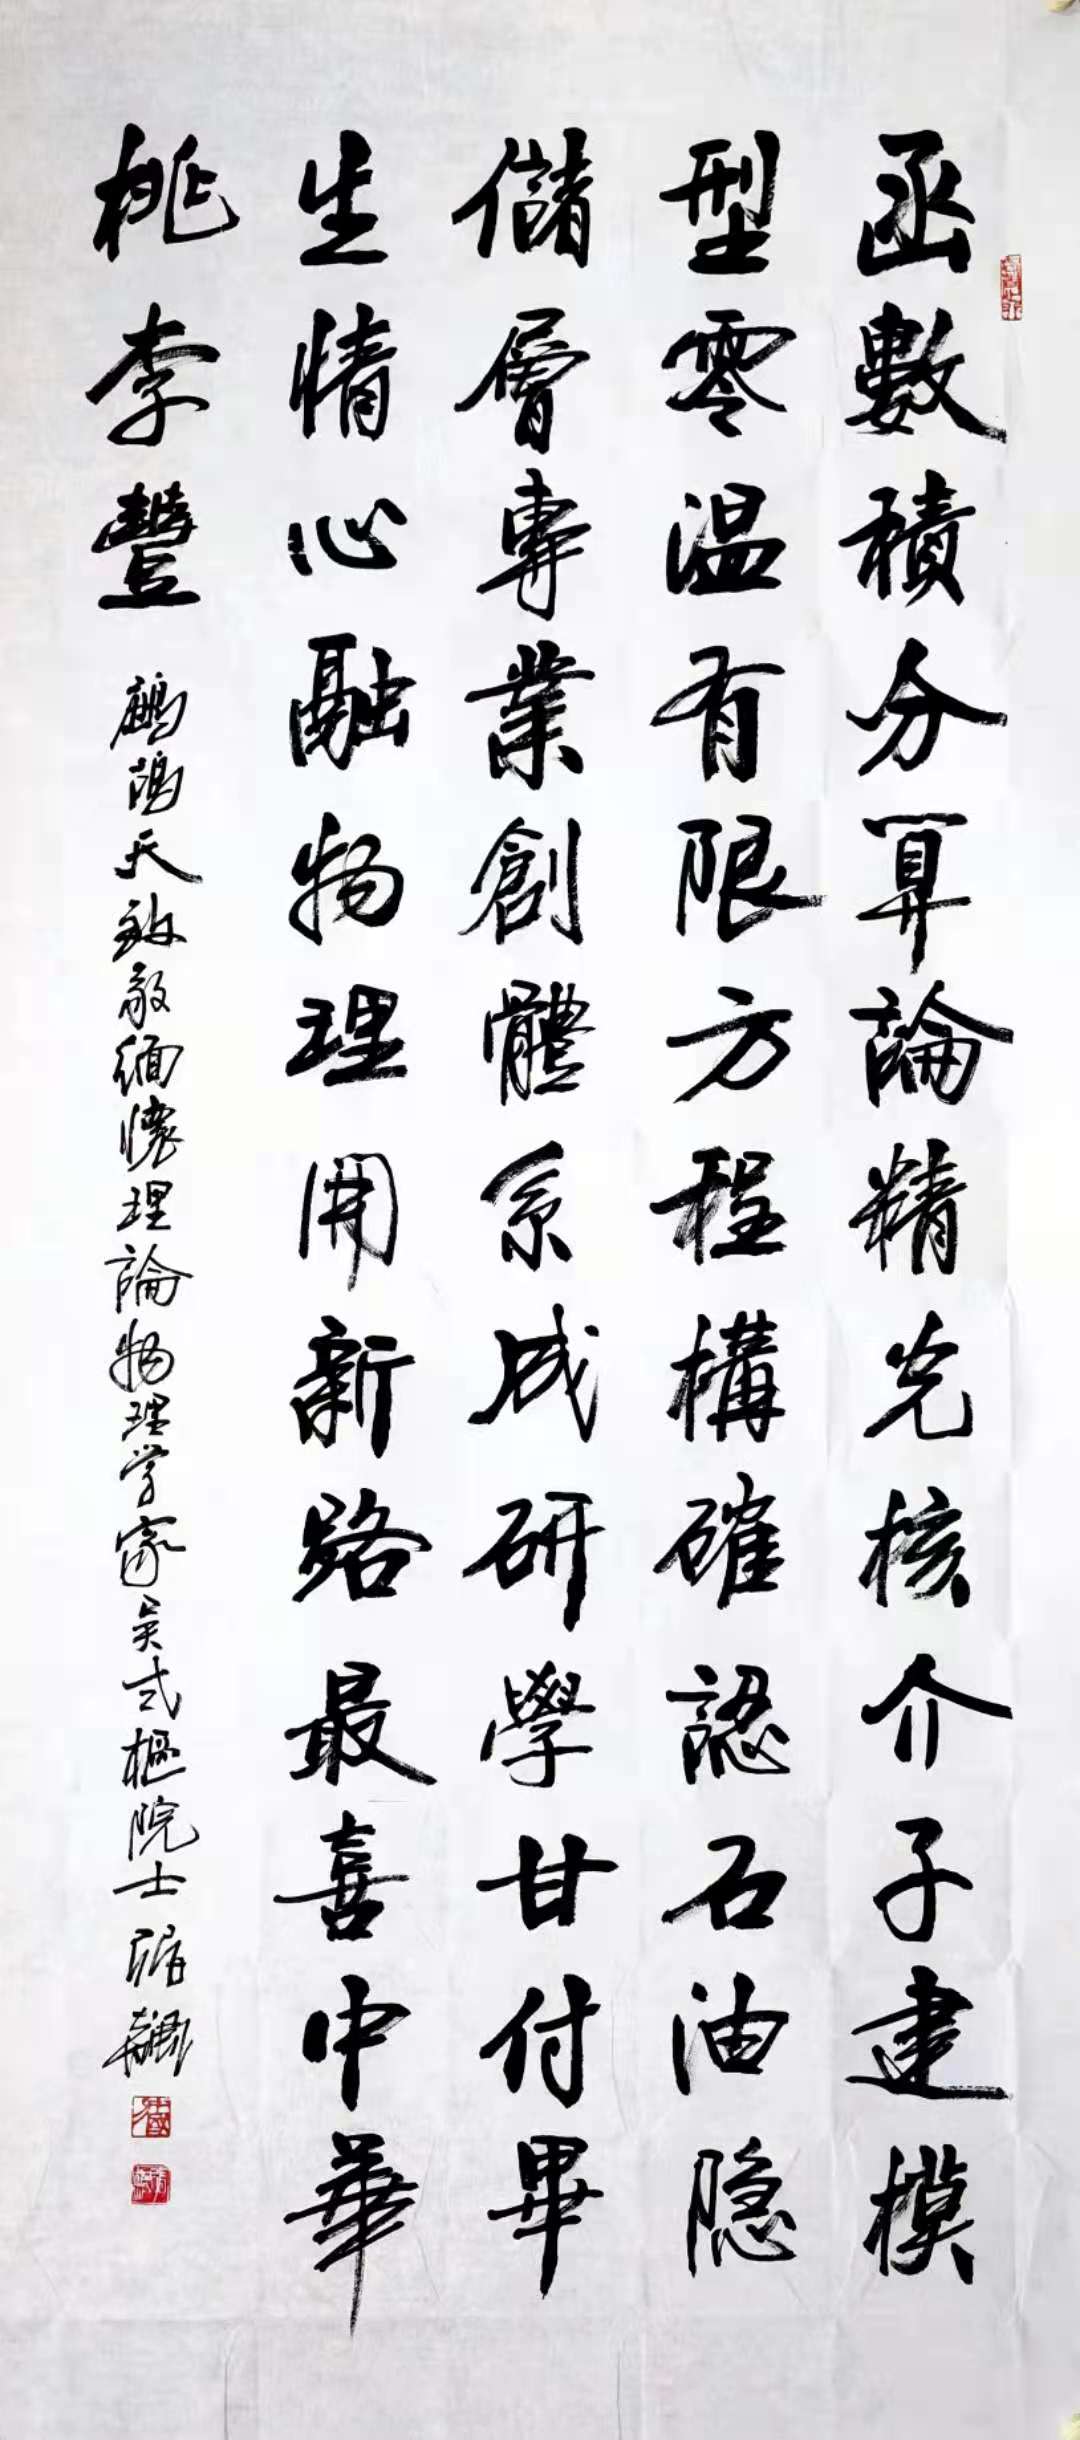 函數積分算論精光核介子建模
型零温有限方程構確認石油隐
儲層專業創體系成研學甘付畢
生情心融物理開新路最喜中華
桃李豐
鷓鴣天致敬緬懷理論物理学家吴式樞院士